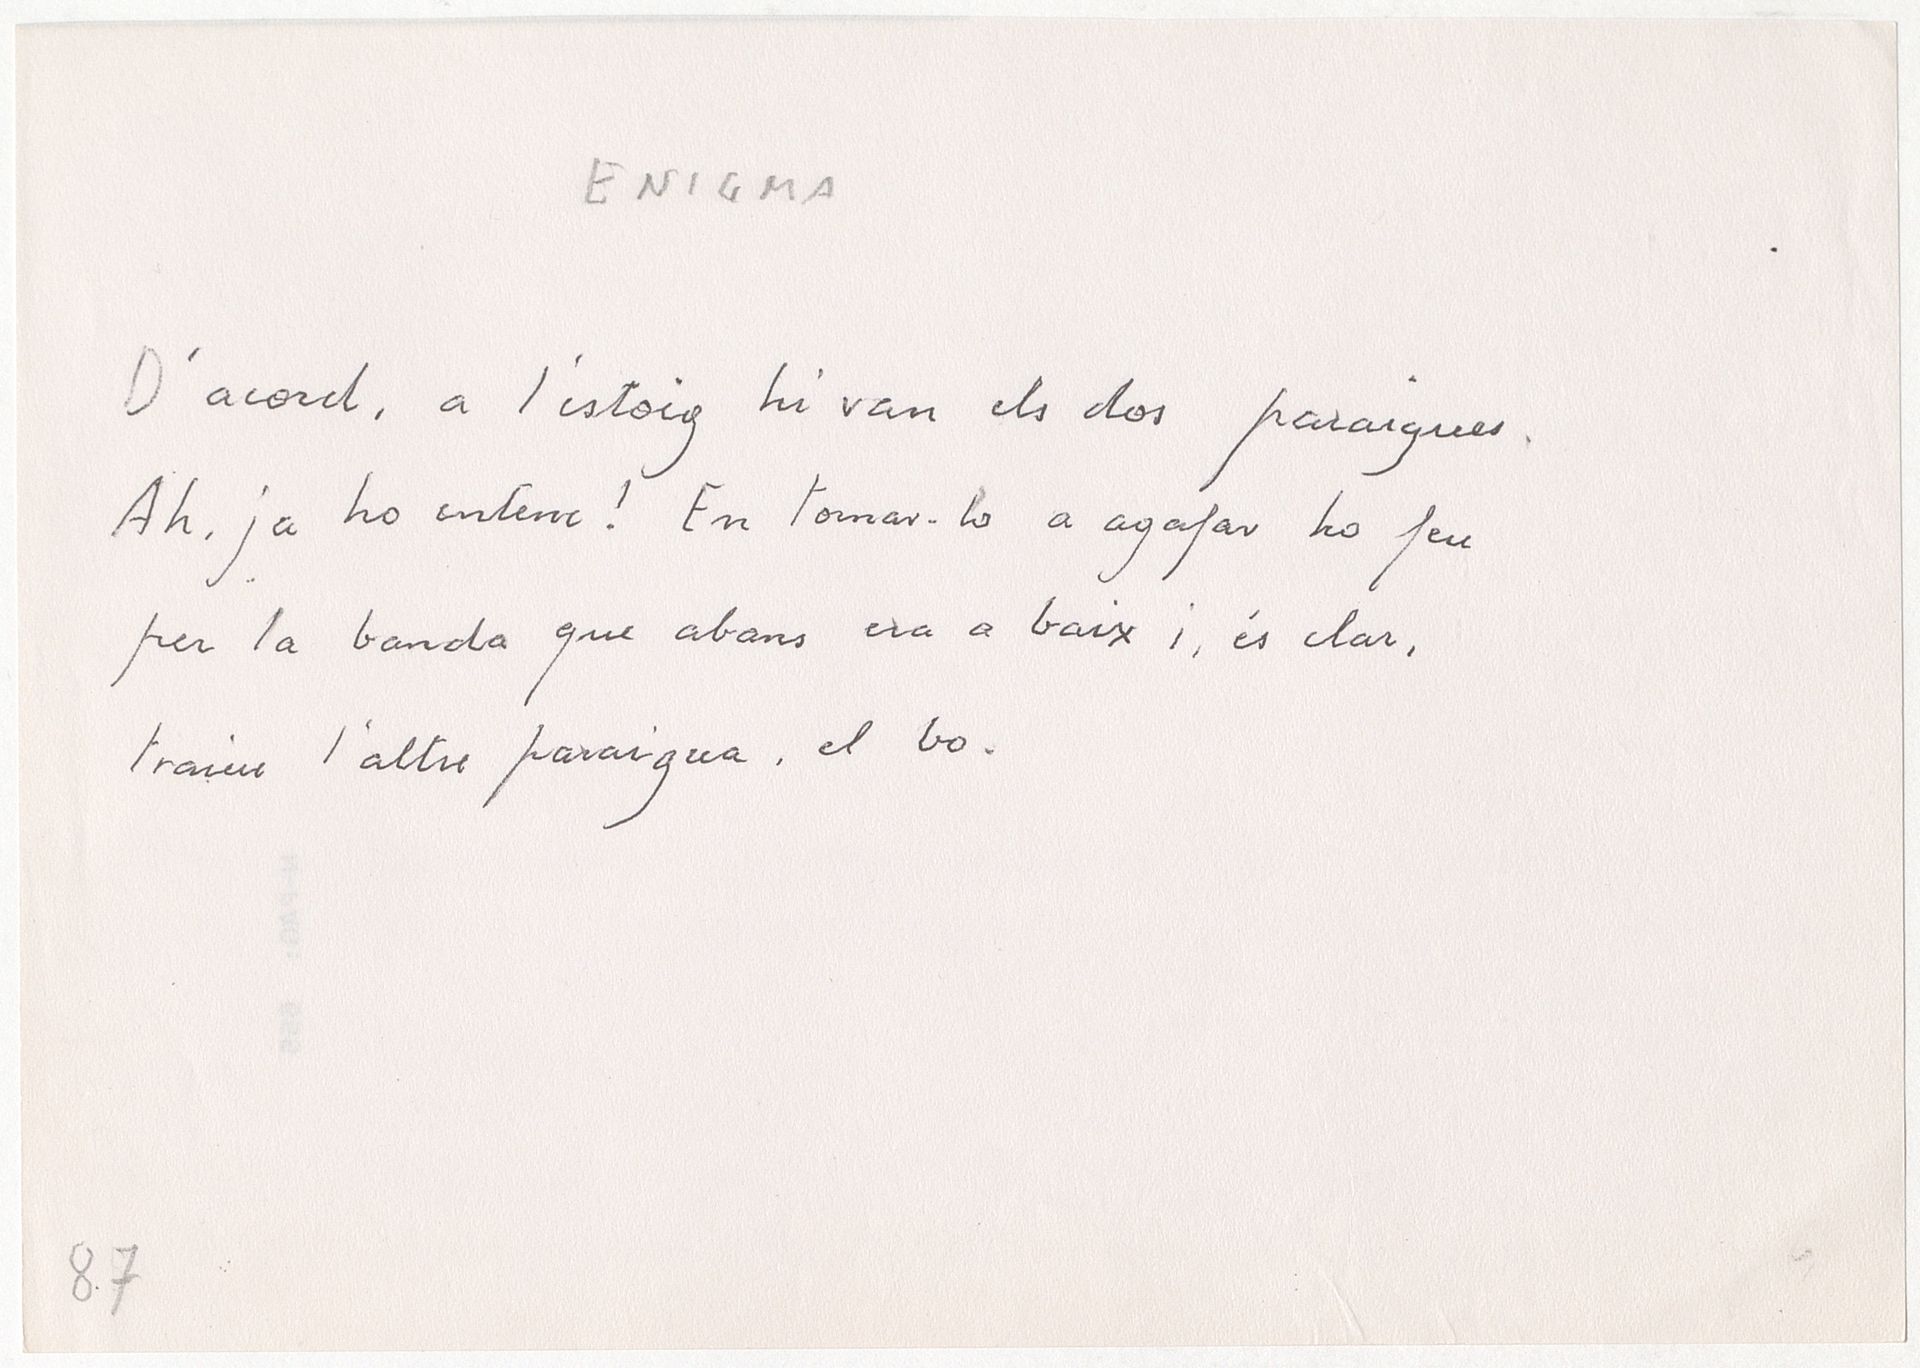 ENIGMA
D'acord, a l'estoig hi van els dos paraigues.
Ah, ja ho entenc! En tornar-lo a agafar ho feu
per la banda que abans era a baix i, és clar,
traieu l'altre paraigua, el bo.
87